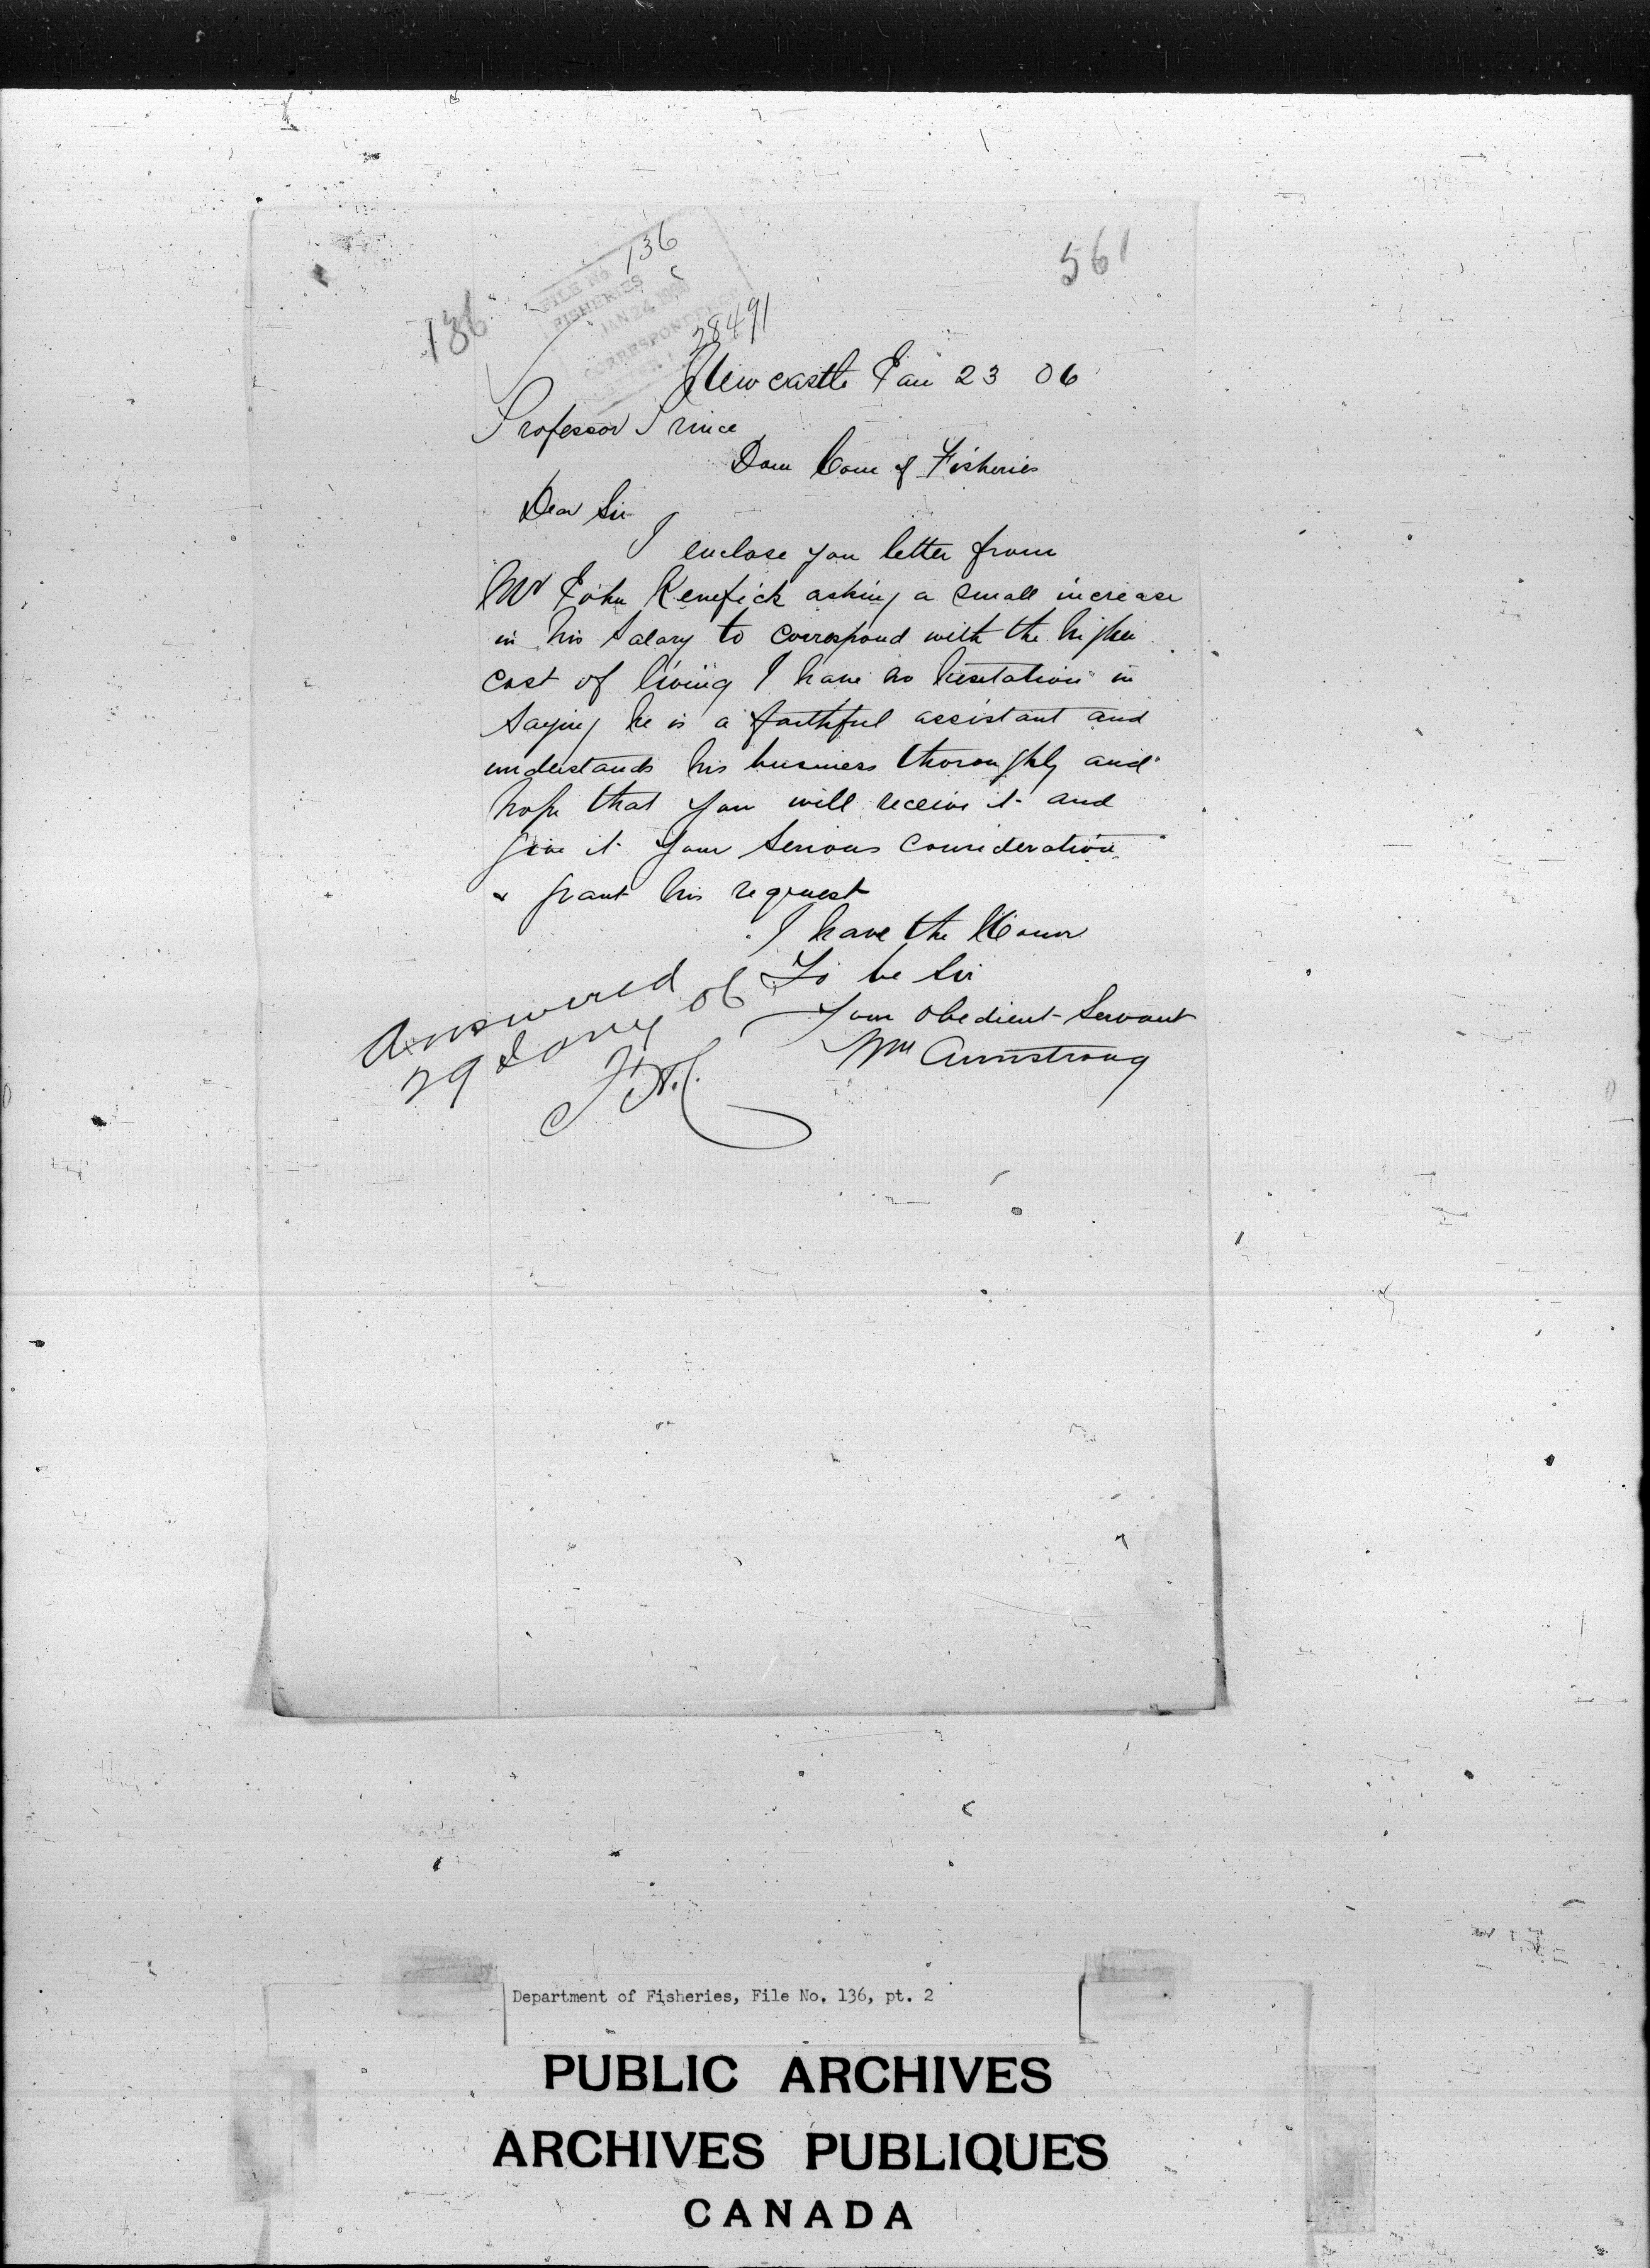 561
136
136
FILE No.
FISHERIES
JAN 24 1906
CORRESPONDENCE
28491
Newcastle Jan 23 06
Professor Prince
Dom Com of Fisheries
Dear Sir
I enclose you letter from
Mr John Kenefick asking a small increase
in his salary to correspond with the higher
cost of living I have no hesitation in
saying he is a faithful assistant and
understands his business thoroughly and
hope that you will receive it and
give it your serious consideration
& grant his request
I have the Honor
To be Sir
Your obedient Servant
Wm Armstrong
Answered
29 Jany 06
Department of Fisheries, File No. 136, pt. 2
PUBLIC ARCHIVES
ARCHIVES PUBLIQUES
CANADA